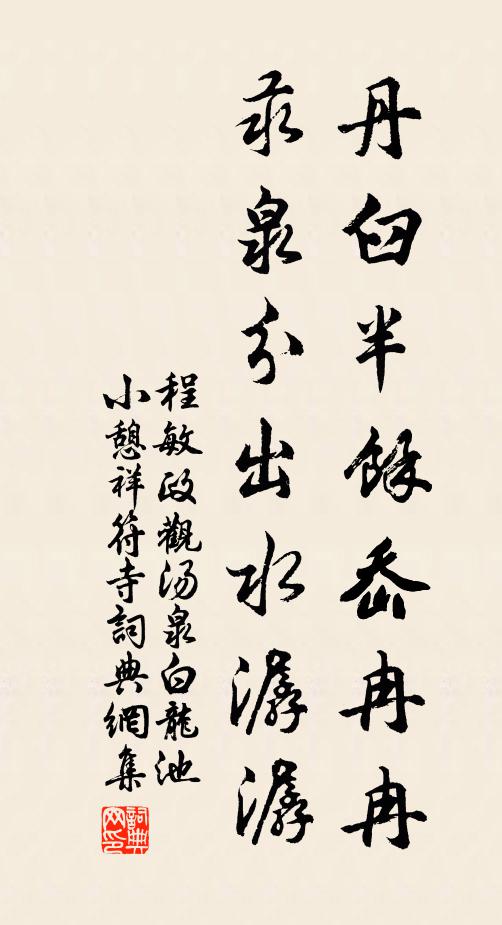 丹臼半餘岙冉冉
汞泉分出水潺潺
程敏政觀湯泉白龍池
小憩祥符寺詞典網集
詞典網印